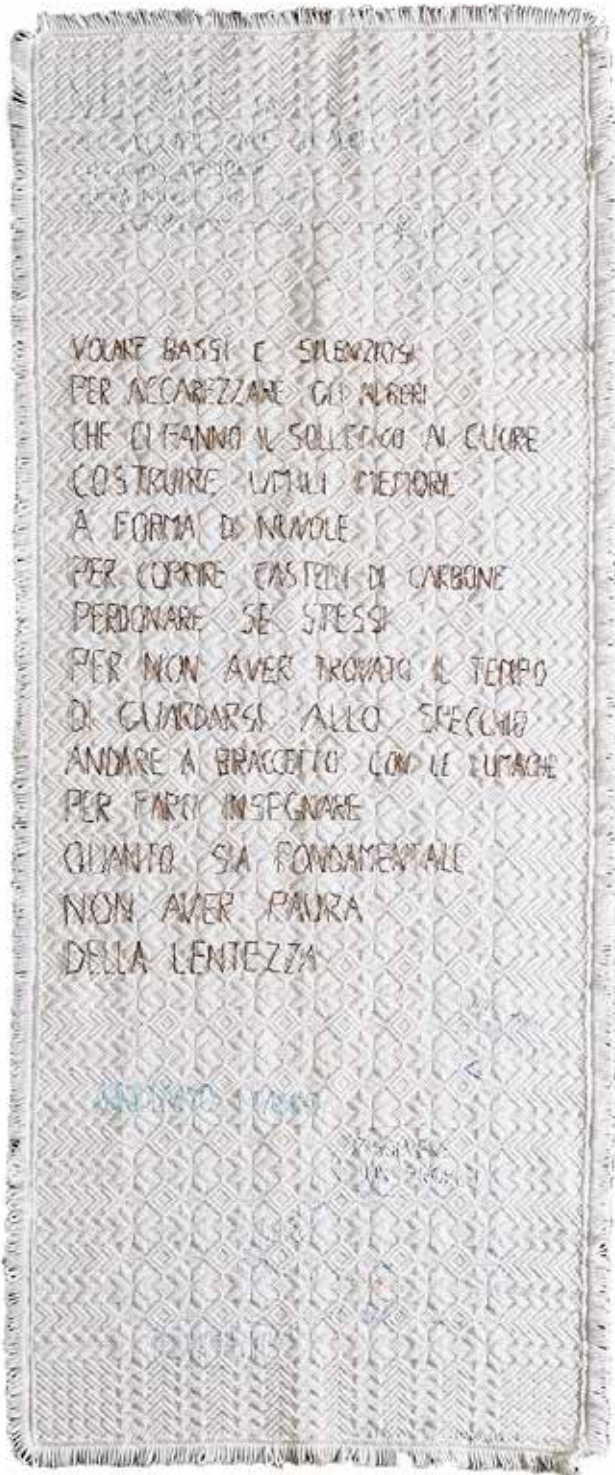 VOLARE BASSI E SILENZIOSI
PER ACCAREZZARE GLI ALBERI
CHE CI FANNO IL SOLLETICO AL CUORE
COSTRUIRE UMILI MEMORIE
A FORMA DI NUVOLE
PER COPRIRE CASTELLI DI CARBONE
PERDONARE SE STESSI
PER NON AVER TROVATO IL TEMPO
DI GUARDARSI ALLO SPECCHIO
ANDARE A BRACCETTO CON LE LUMACHE
PER FARCI INSEGNARE
QUANTO SIA FONDAMENTALE
NON AVER PAURA
DELLA LENTEZZA